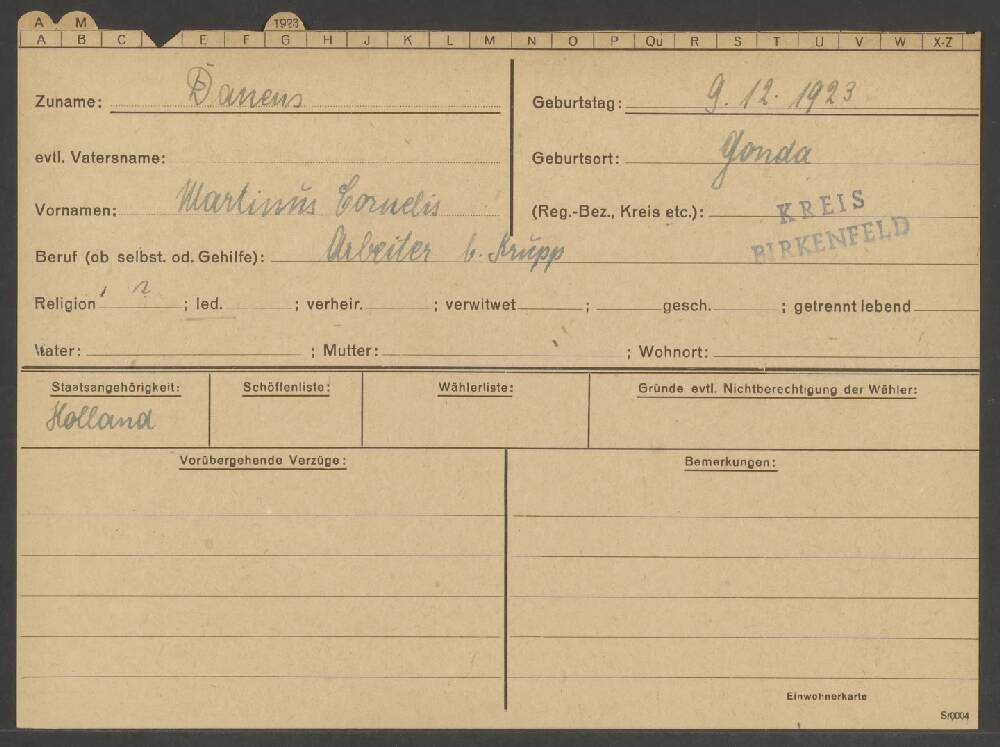 A M 1923
A B C E F G H J K L M N O P Qu R S T U V W X-Z
Zuname: Danens
Geburtstag: 9. 12. 1923
evtl. Vatersname:
Geburtsort: Gonda
Vornamen: Martinus Cornelis
(Reg.-Bez., Kreis etc.): KREIS BIRKENFELD
Beruf (ob selbst. od. Gehilfe): Arbeiter b. Krupp
Religion ? ; led. ; verheir. ; verwitwet ; gesch. ; getrennt lebend
Vater: ; Mutter: ; Wohnort:
Staatsangehörigkeit: Schöffenliste: Wählerliste: Gründe evtl. Nichtberechtigung der Wähler:
Holland
Vorübergehende Verzüge: Bemerkungen:
Einwohnerkarte
S/0004